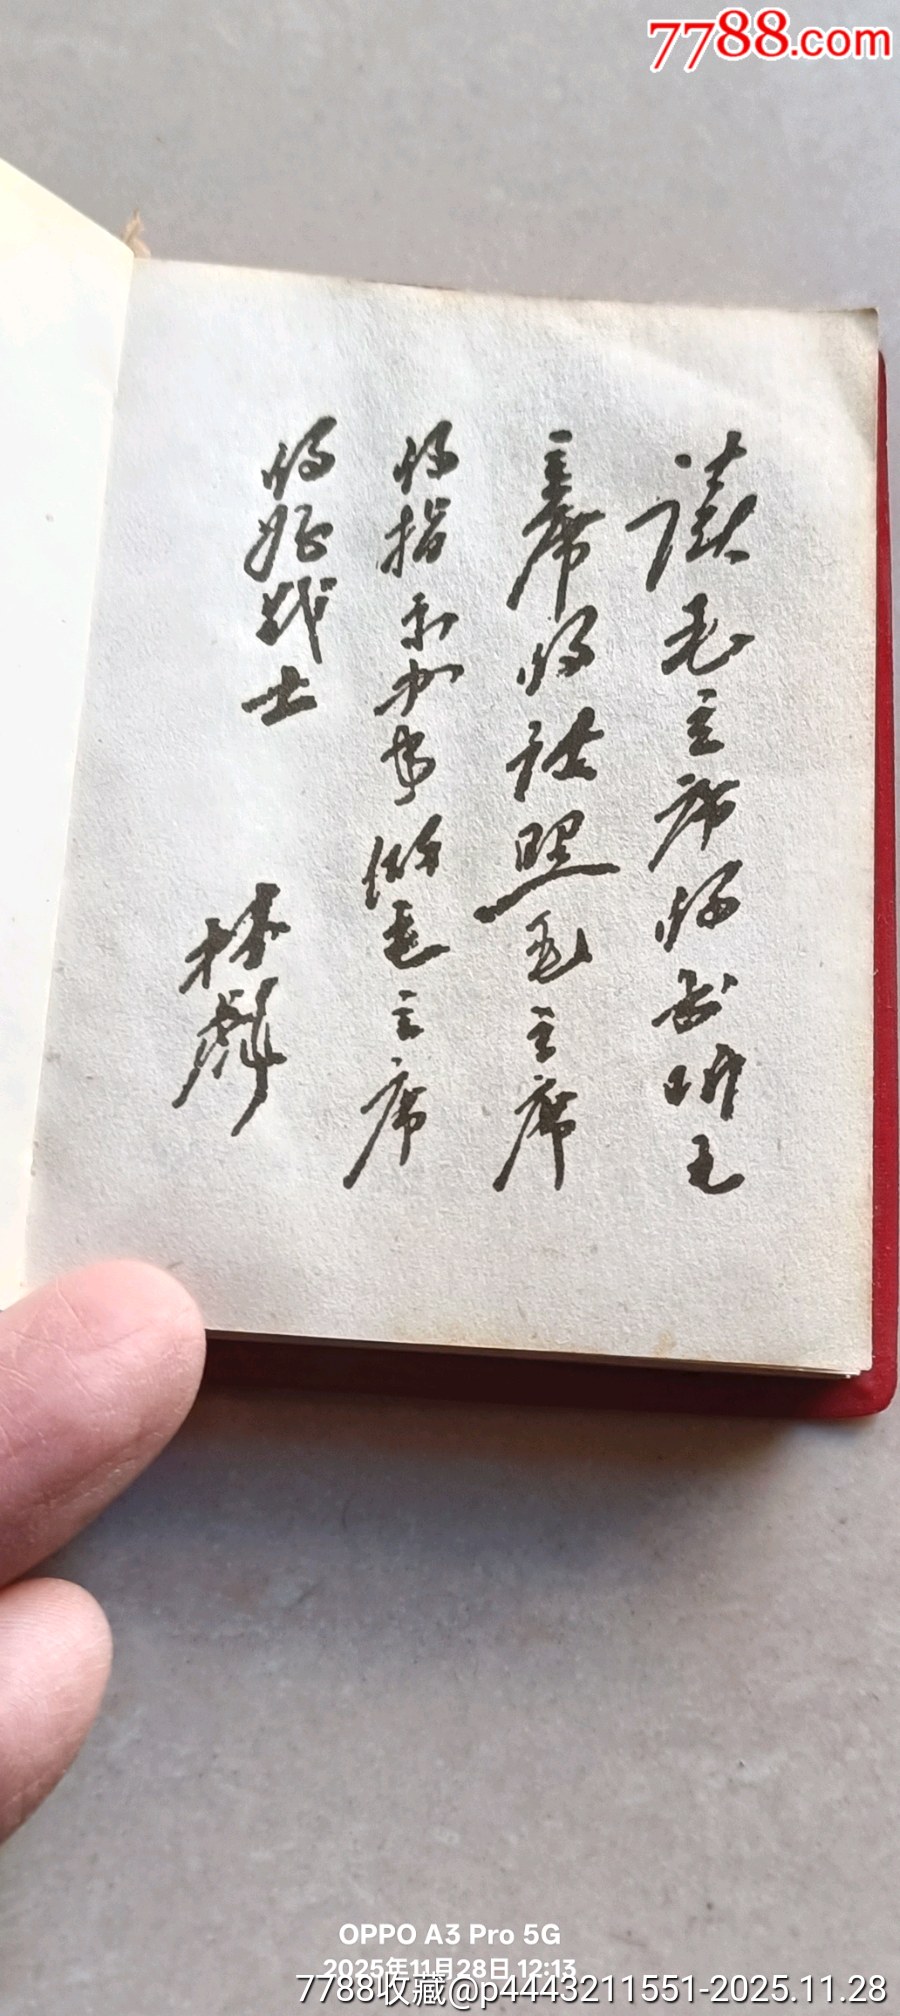 7788.com
读毛主席的书听毛
主席的话照毛主席
的指示办事做毛主席
的好战士
林彪
OPPO A3 Pro 5G
2025年11月28日 12:13
7788收藏@p4443211551-2025.11.28